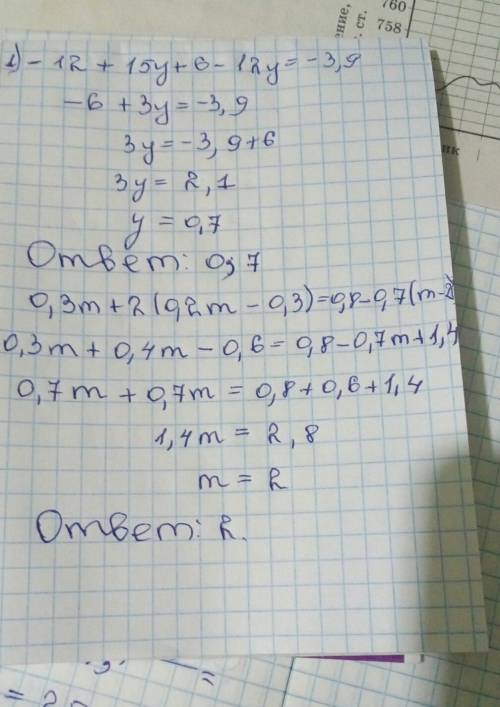 760
758
ст.
1) - 12 + 15y + 6 - 12y = -3,9
-6 + 3y = -3,9
3y = -3,9+6
3y = 2,1
y = 0,7
Ответ: 0,7
0,3m + 2(0,2m - 0,3) = 0,8 - 0,7(m-2)
0,3m + 0,4m - 0,6 = 0,8 - 0,7m + 1,4
0,7m + 0,7m = 0,8 + 0,6 + 1,4
1,4m = 2,8
m = 2
Ответ: 2.